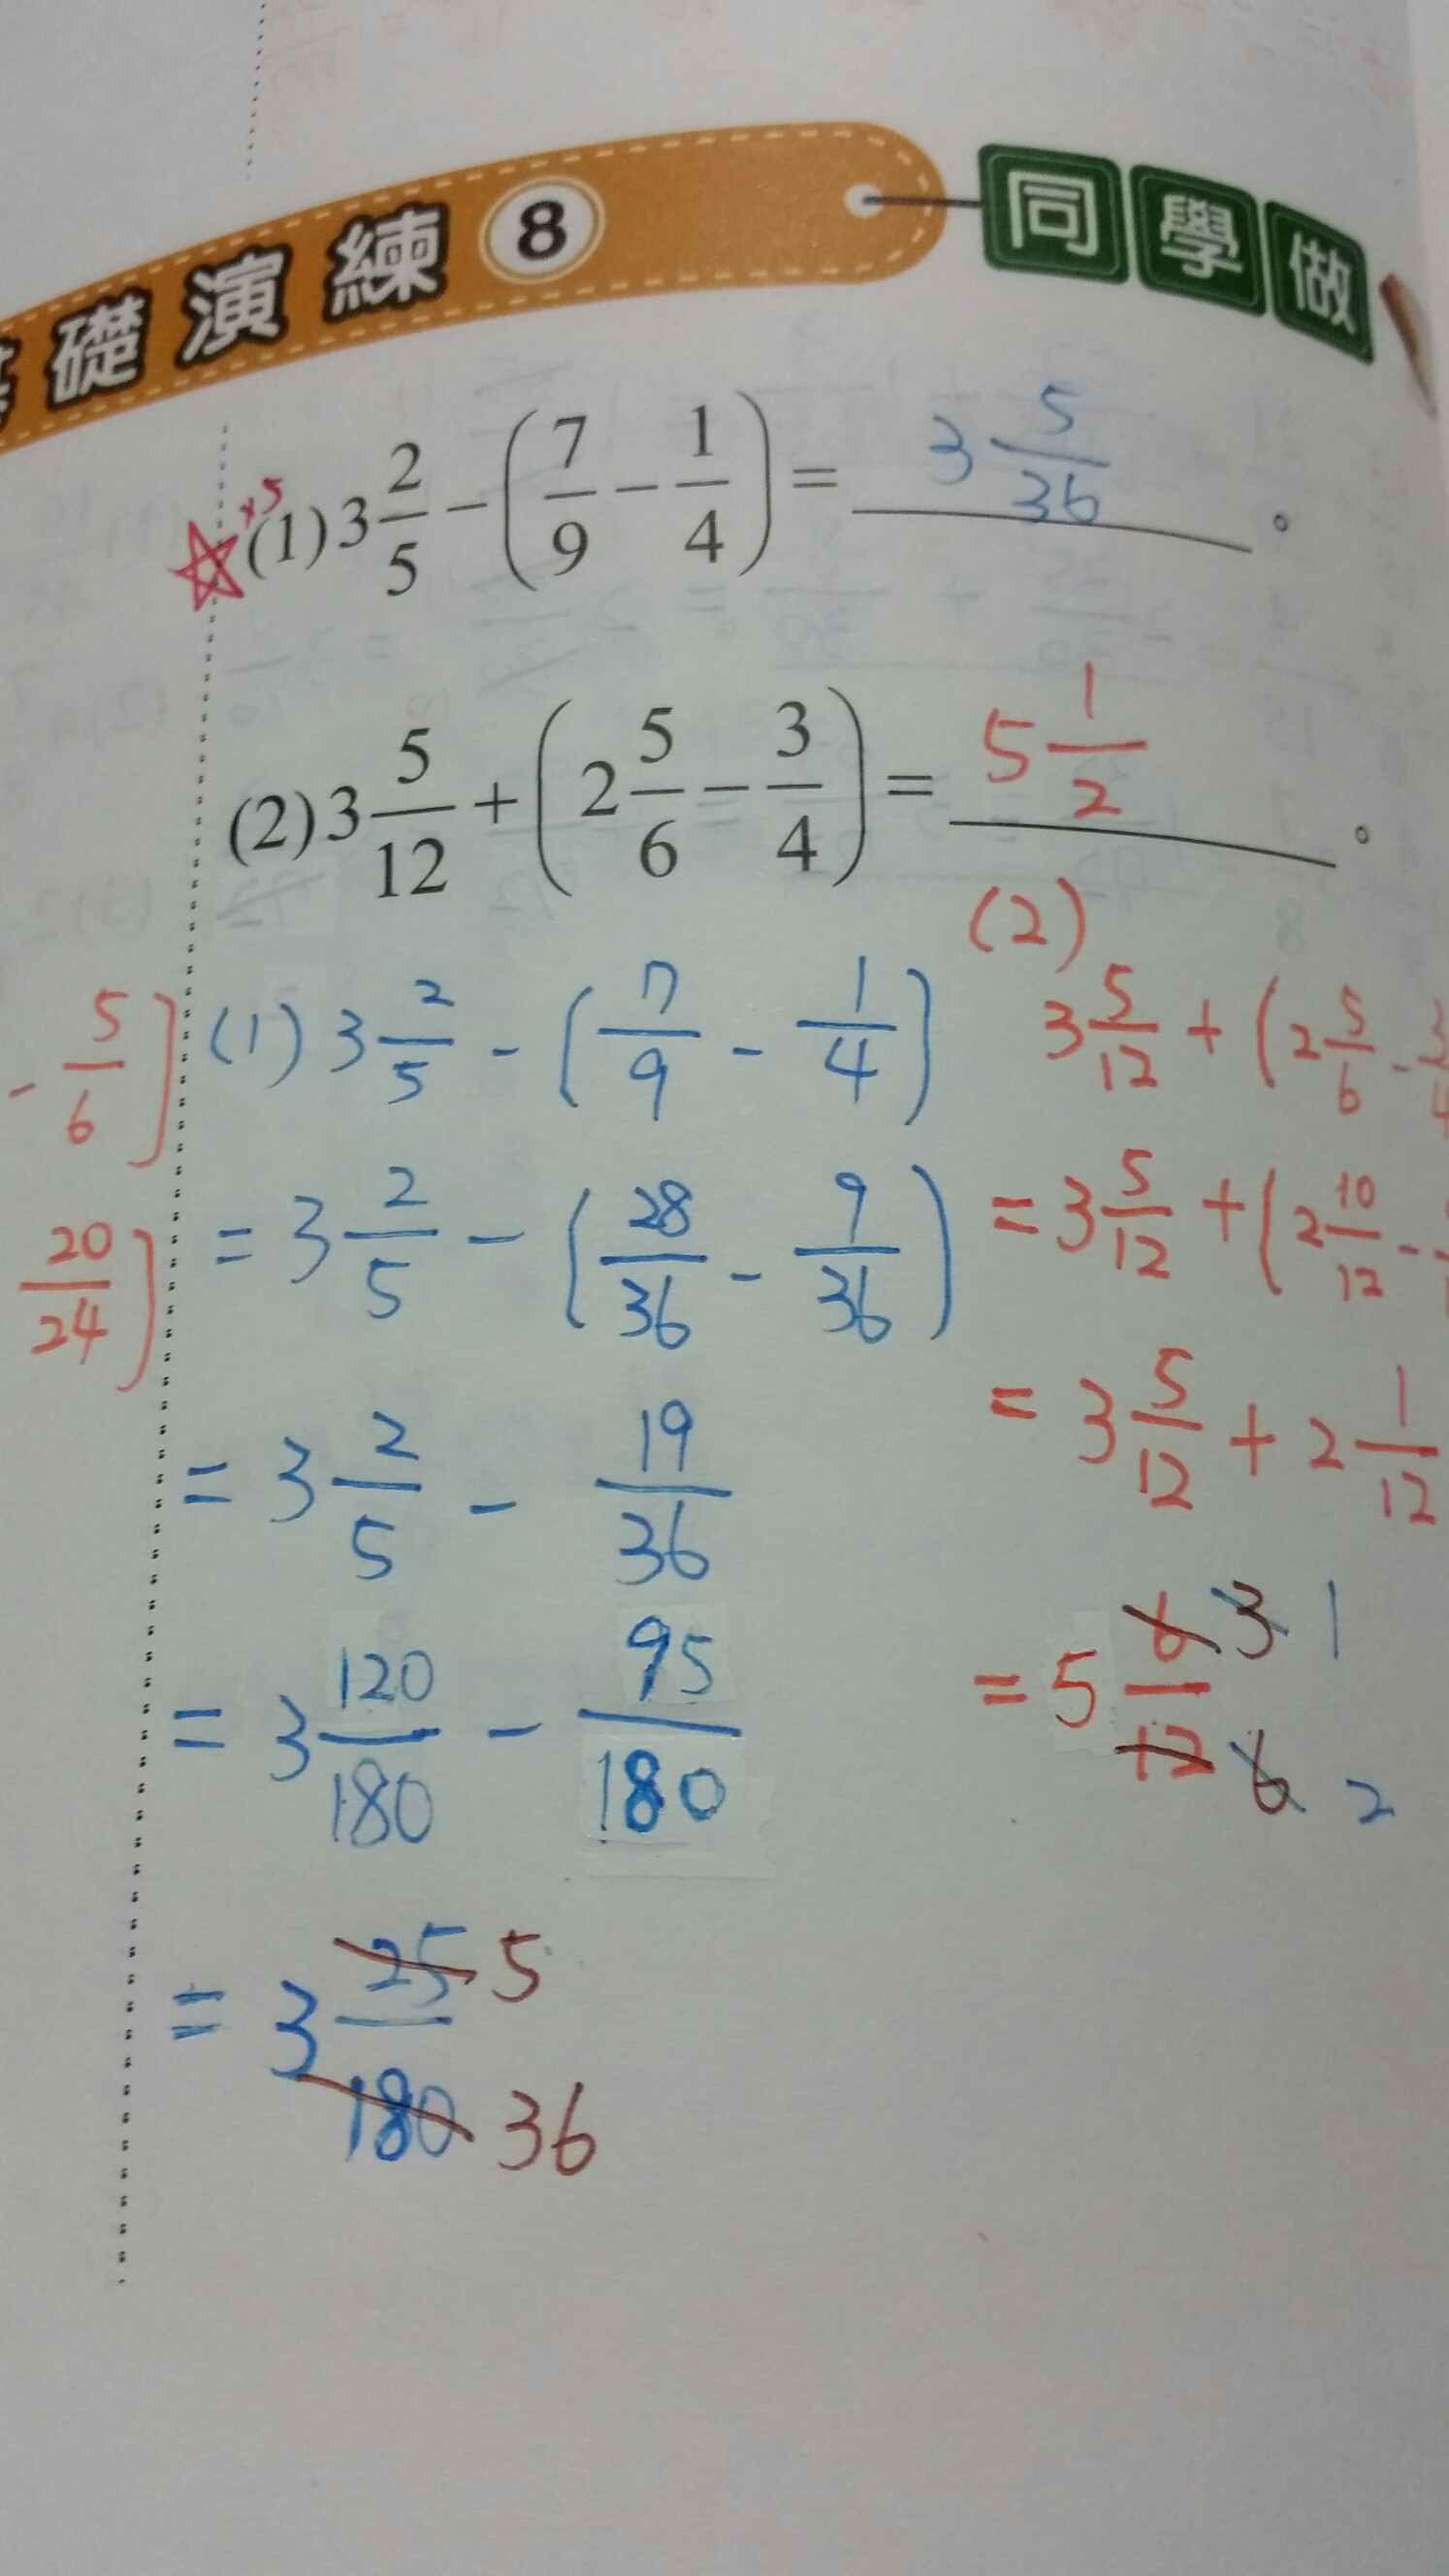 礎演練 8 同學做
×5
(1) 3 2/5 - (7/9 - 1/4) = 3 5/36 。
(2) 3 5/12 + (2 5/6 - 3/4) = 5 1/2 。
- 5/6 ]
20/24 ]
(1) 3 2/5 - (7/9 - 1/4)
= 3 2/5 - (28/36 - 9/36)
= 3 2/5 - 19/36
= 3 120/180 - 95/180
= 3 25/180 5/36
(2)
3 5/12 + (2 5/6 - 3/4
= 3 5/12 + (2 10/12 -
= 3 5/12 + 2 1/12
= 5 6/12 3/6 1/2